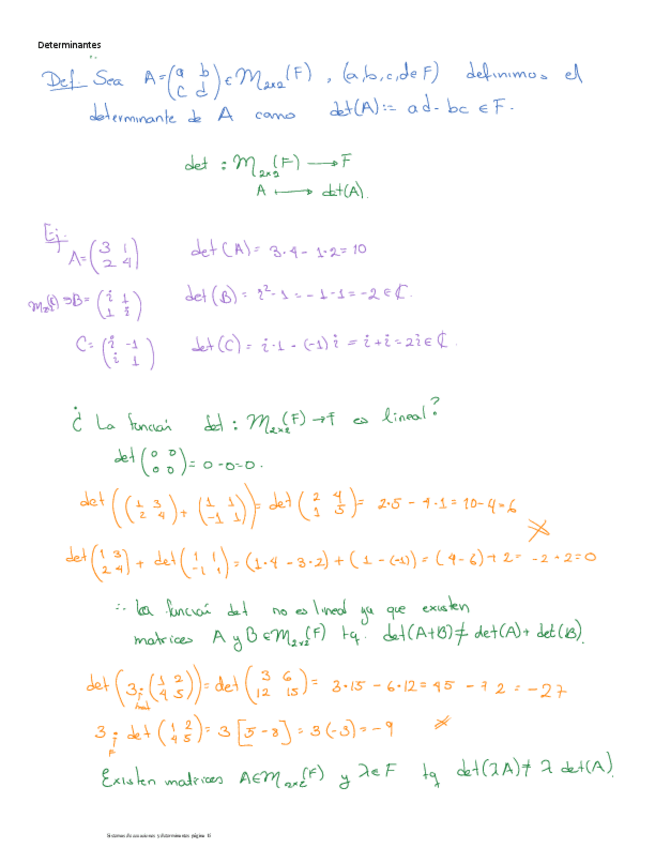 Determinantes
Def. Sea A=(a b / c d) ∈ M₂ₓ₂(F), (a,b,c,d∈F) definimos el
determinante de A como det(A):= ad-bc ∈ F.
det : M₂ₓ₂(F) → F
A ↦ det(A).
Ej.
A=(3 1 / 2 4) det(A)= 3·4-1·2=10
M₂ₓ₂(ℂ)∋B=(i 1 / 1 i) det(B)= i²-1=-1-1=-2∈ℂ.
C=(i -1 / i 1) det(C)= i·1-(-1)i = i+i=2i∈ℂ.
¿La función det : M₂ₓ₂(F)→F es lineal?
det(0 0 / 0 0)=0-0=0.
det((1 3 / 2 4)+(1 1 / -1 1))=det(2 4 / 1 5)= 2·5-4·1=10-4=6
det(1 3 / 2 4)+det(1 1 / -1 1)=(1·4-3·2)+(1-(-1))=(4-6)+2=-2+2=0
∴ La función det no es lineal ya que existen
matrices A y B∈M₂ₓ₂(F) tq. det(A+B)≠det(A)+det(B).
det(3·(1 2 / 4 5))=det(3 6 / 12 15)= 3·15-6·12=45-72=-27
3·det(1 2 / 4 5)=3[5-8]=3(-3)=-9
F
Existen matrices A∈M₂ₓ₂(F) y λ∈F tq det(λA)≠λ det(A).
Sistemas de ecuaciones y determinantes página